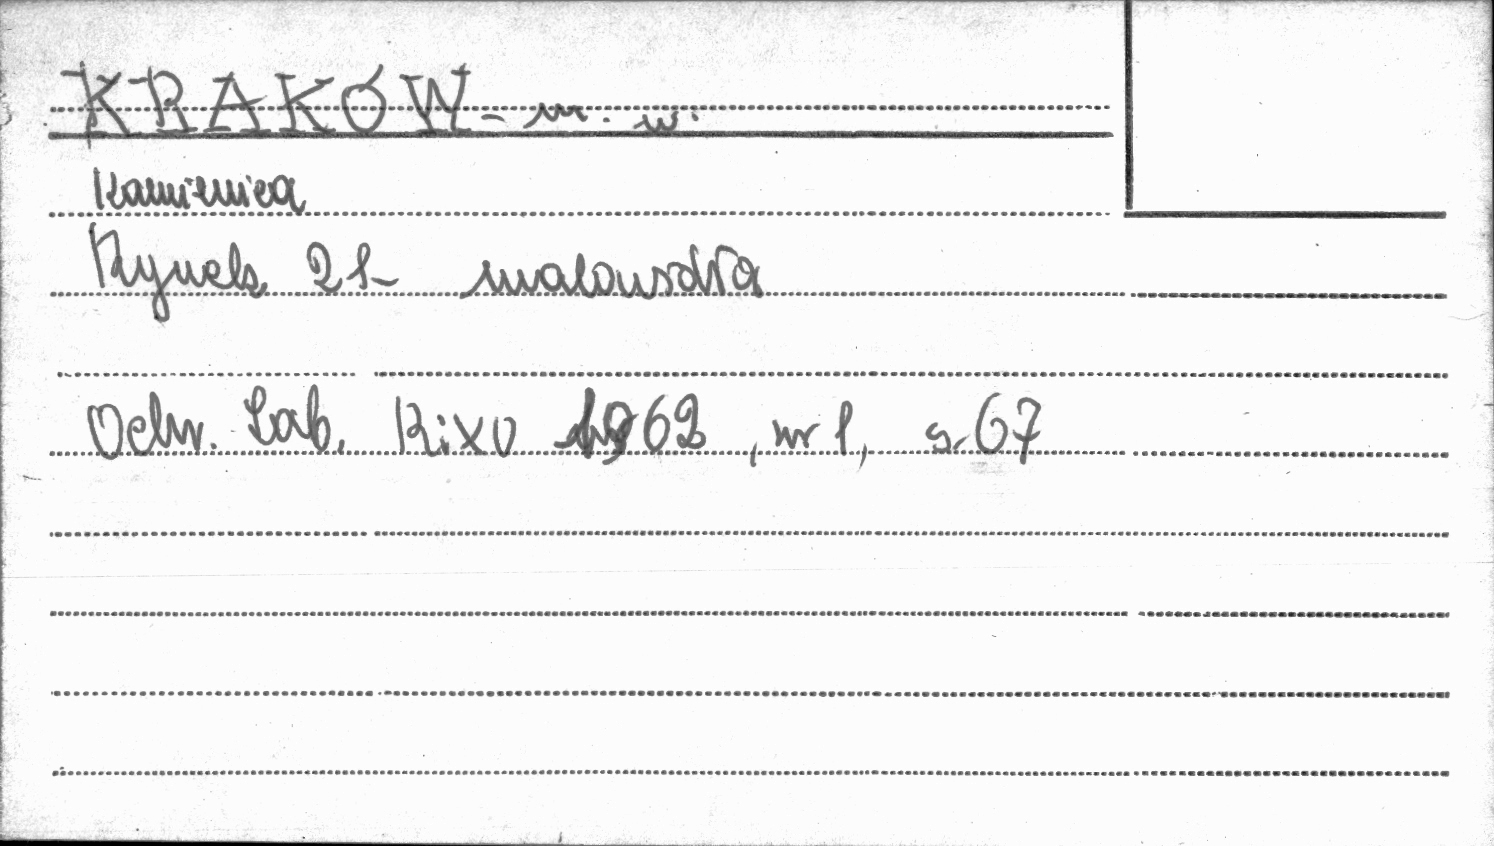 KRAKÓW - m. w.
Kamienica
Rynek 21 - malowidła
Ochr. Zab. R.XV 1962, nr 1, s. 67